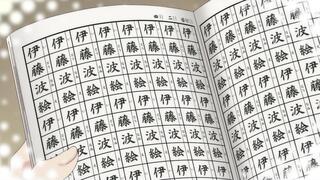 伊藤波絵伊藤波
伊藤波絵伊藤波
伊藤波絵伊藤波
伊藤波絵伊藤波
伊藤波絵伊藤波
伊藤波絵伊藤波
伊藤波絵伊藤波
伊藤波絵伊藤波
伊藤波絵伊藤波
伊藤波絵伊藤波
伊藤波絵伊藤波
伊藤波絵伊藤波